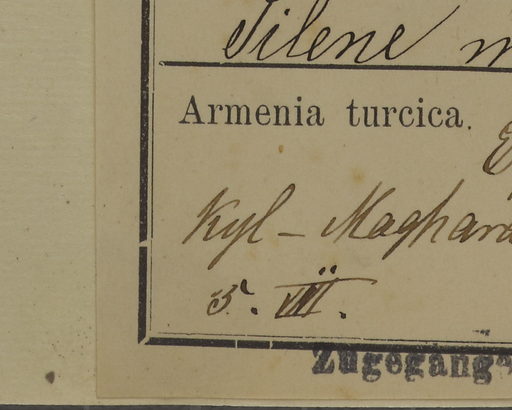 Silene
Armenia turcica.
Kyl - Maghara
5. VIII.
Zugegang